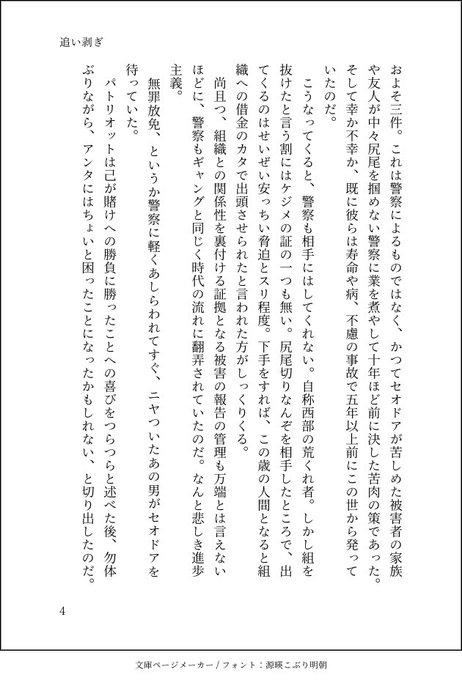 追い剥ぎ
およそ三件。これは警察によるものではなく、かつてセオドアが苦しめた被害者の家族
や友人が中々尻尾を掴めない警察に業を煮やして十年ほど前に決した苦肉の策であった。
そして幸か不幸か、既に彼らは寿命や病、不慮の事故で五年以上前にこの世から発って
いたのだ。
こうなってくると、警察も相手にはしてくれない。自称西部の荒くれ者。しかし組を
抜けたと言う割にはケジメの証の一つも無い。尻尾切りなんぞを相手したところで、出
てくるのはせいぜい安っちい脅迫とスリ程度。下手をすれば、この歳の人間となると組
織への借金のカタで出頭させられたと言われた方がしっくりくる。
尚且つ、組織との関係性を裏付ける証拠となる被害の報告の管理も万端とは言えない
ほどに、警察もギャングと同じく時代の流れに翻弄されていたのだ。なんと悲しき進歩
主義。
無罪放免、というか警察に軽くあしらわれてすぐ、ニヤついたあの男がセオドアを
待っていた。
パトリオットは己が賭けへの勝負に勝ったことへの喜びをつらつらと述べた後、勿体
ぶりながら、アンタにはちょいと困ったことになったかもしれない、と切り出したのだ。
4
文庫ページメーカー / フォント：源暎こぶり明朝